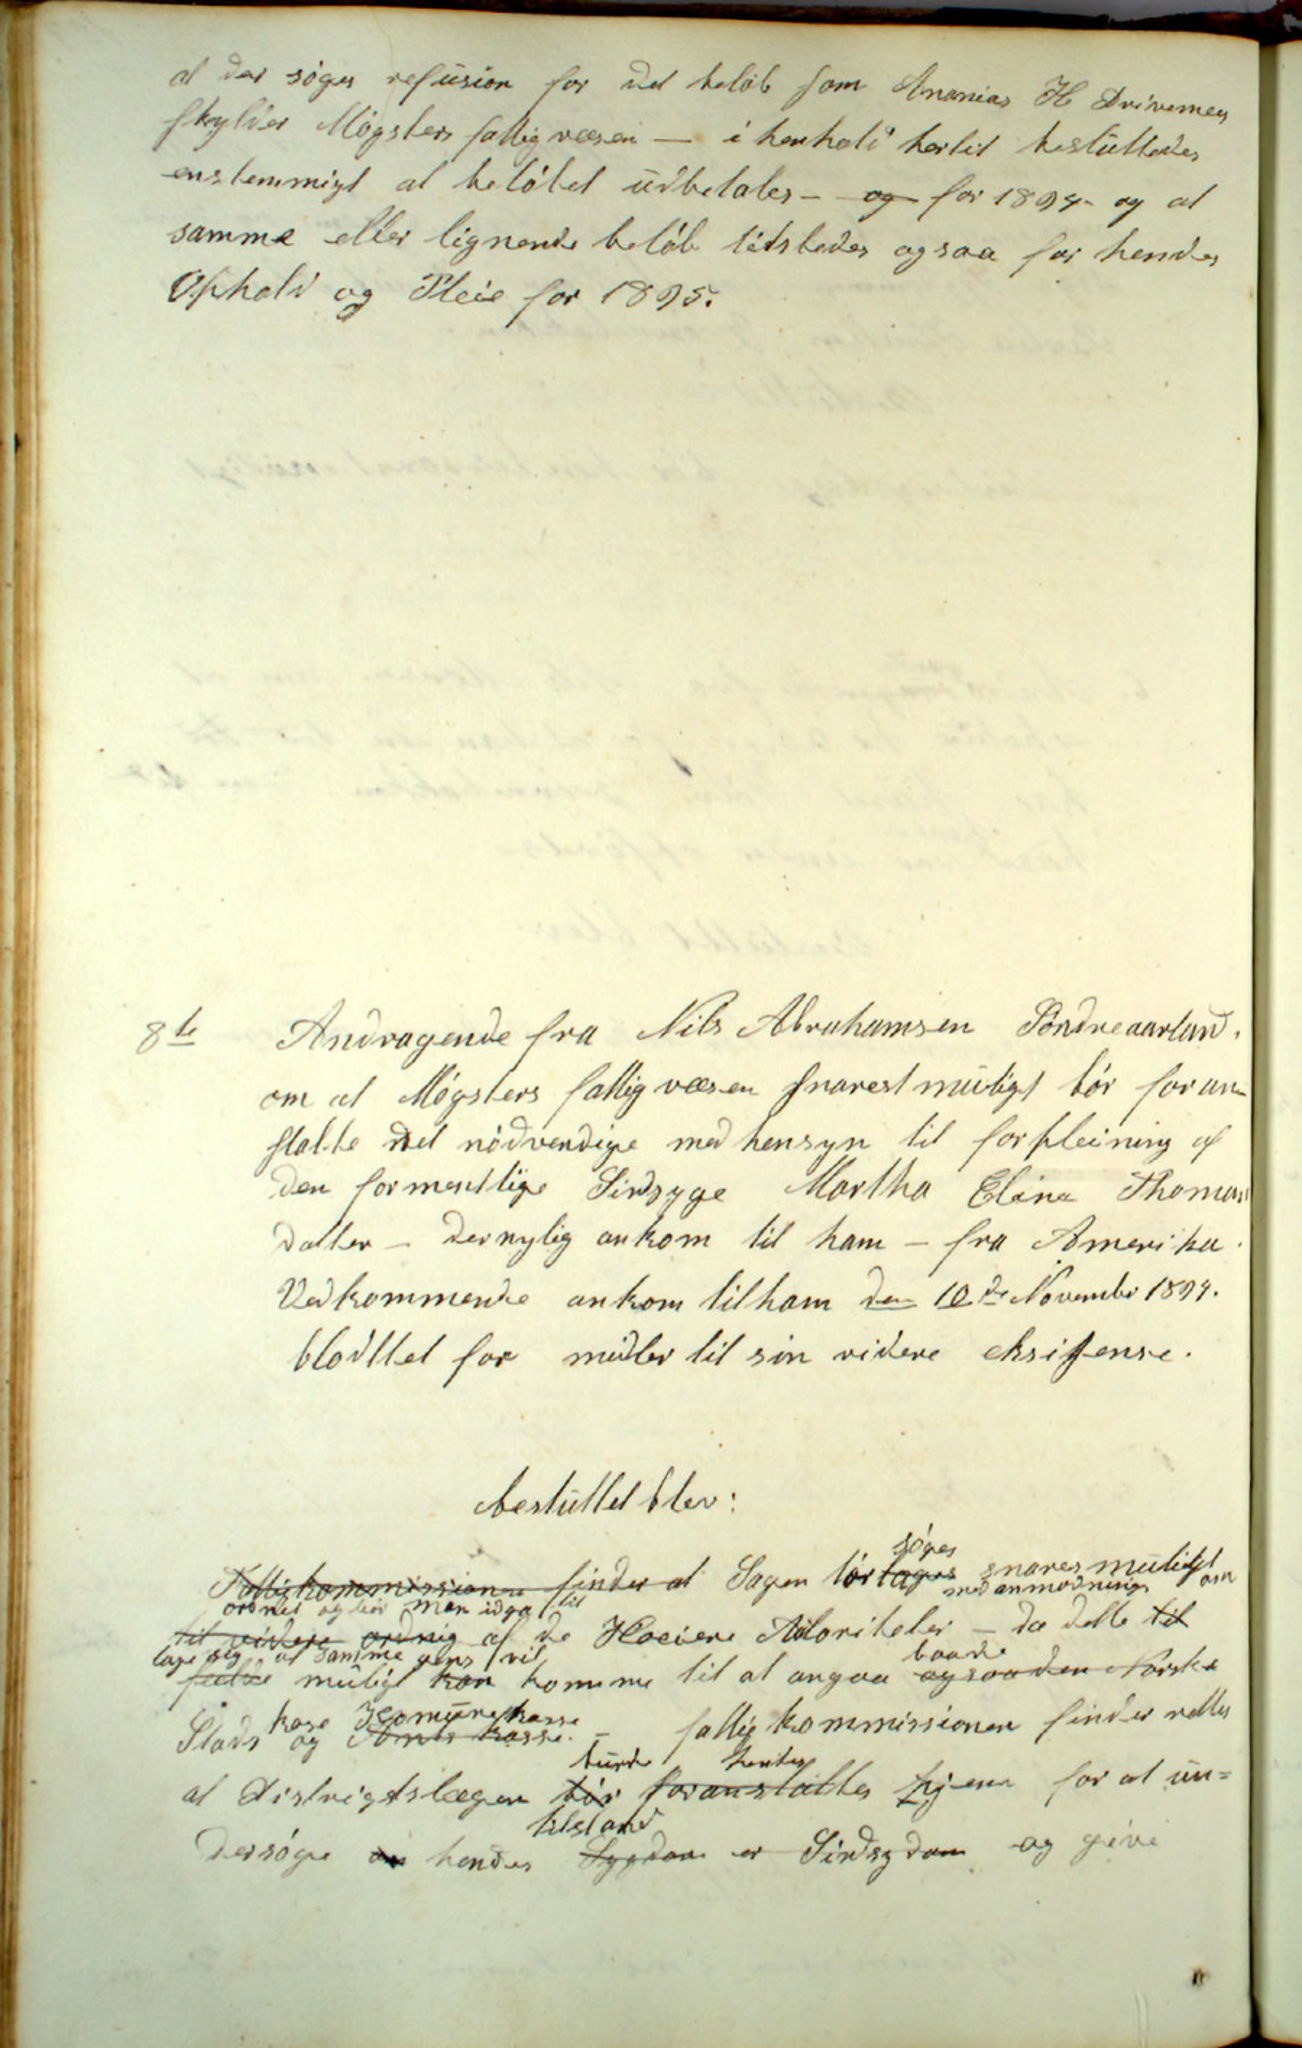 at der søges refusion for det beløb som Ananias H Drivenes
skylder Møgsters fattigvæsen — i henhold hertil besluttedes
enstemmigt at beløbet udbetales — og for 1894 - og at
samme eller lignende beløb tilstedes ogsaa for hendes
Ophold og Pleie for 1895.
8de Andragende fra Nils Abrahamsen Søndreaarland,
om at Møgsters fattigvæsen snarest muligt bør foran
stalte det nødvendige med hensyn til forpleining af
den formentlige Sindsyge Martha Elina Thomas
datter — der nylig ankom til ham — fra Amerika.
Vedkommende ankom til ham den 10de November 1894.
blodttet for midler til sin videre eksistense.
besluttet blev:
søges
Fattigkommissionen finder at Sagen bør tages snares muligt
ordnet og bør man til med anmodning om
til videre ordnig af de Høeiere Autoriteter — da dette til
tage sig af samme vil baade
muligt kan komme til at angaa ogsaa den Norske
kase Komunekasse
Stads og Amts kasse. — fattigkommissionen finder rettes
burde hentes
at Distrigtslægen bør foranstaltes hjem for at un=
tilstand
dersøge om hendes Sygdom er Sindsygdom og give